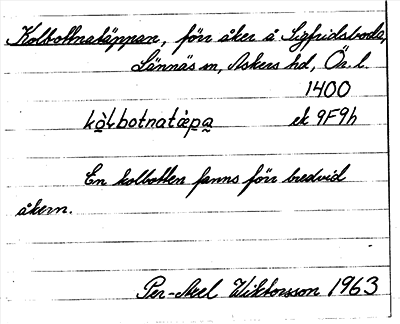 Kolbottnatäppan, förr åker å Sigfridsboda,
Lännäs sn, Askers hd, Ör. l.
1400
kòⱡbotnatæ̀pa ek 9F9h
En kolbotten fanns förr bredvid
åkern.
Per-Axel Wiktorsson 1963